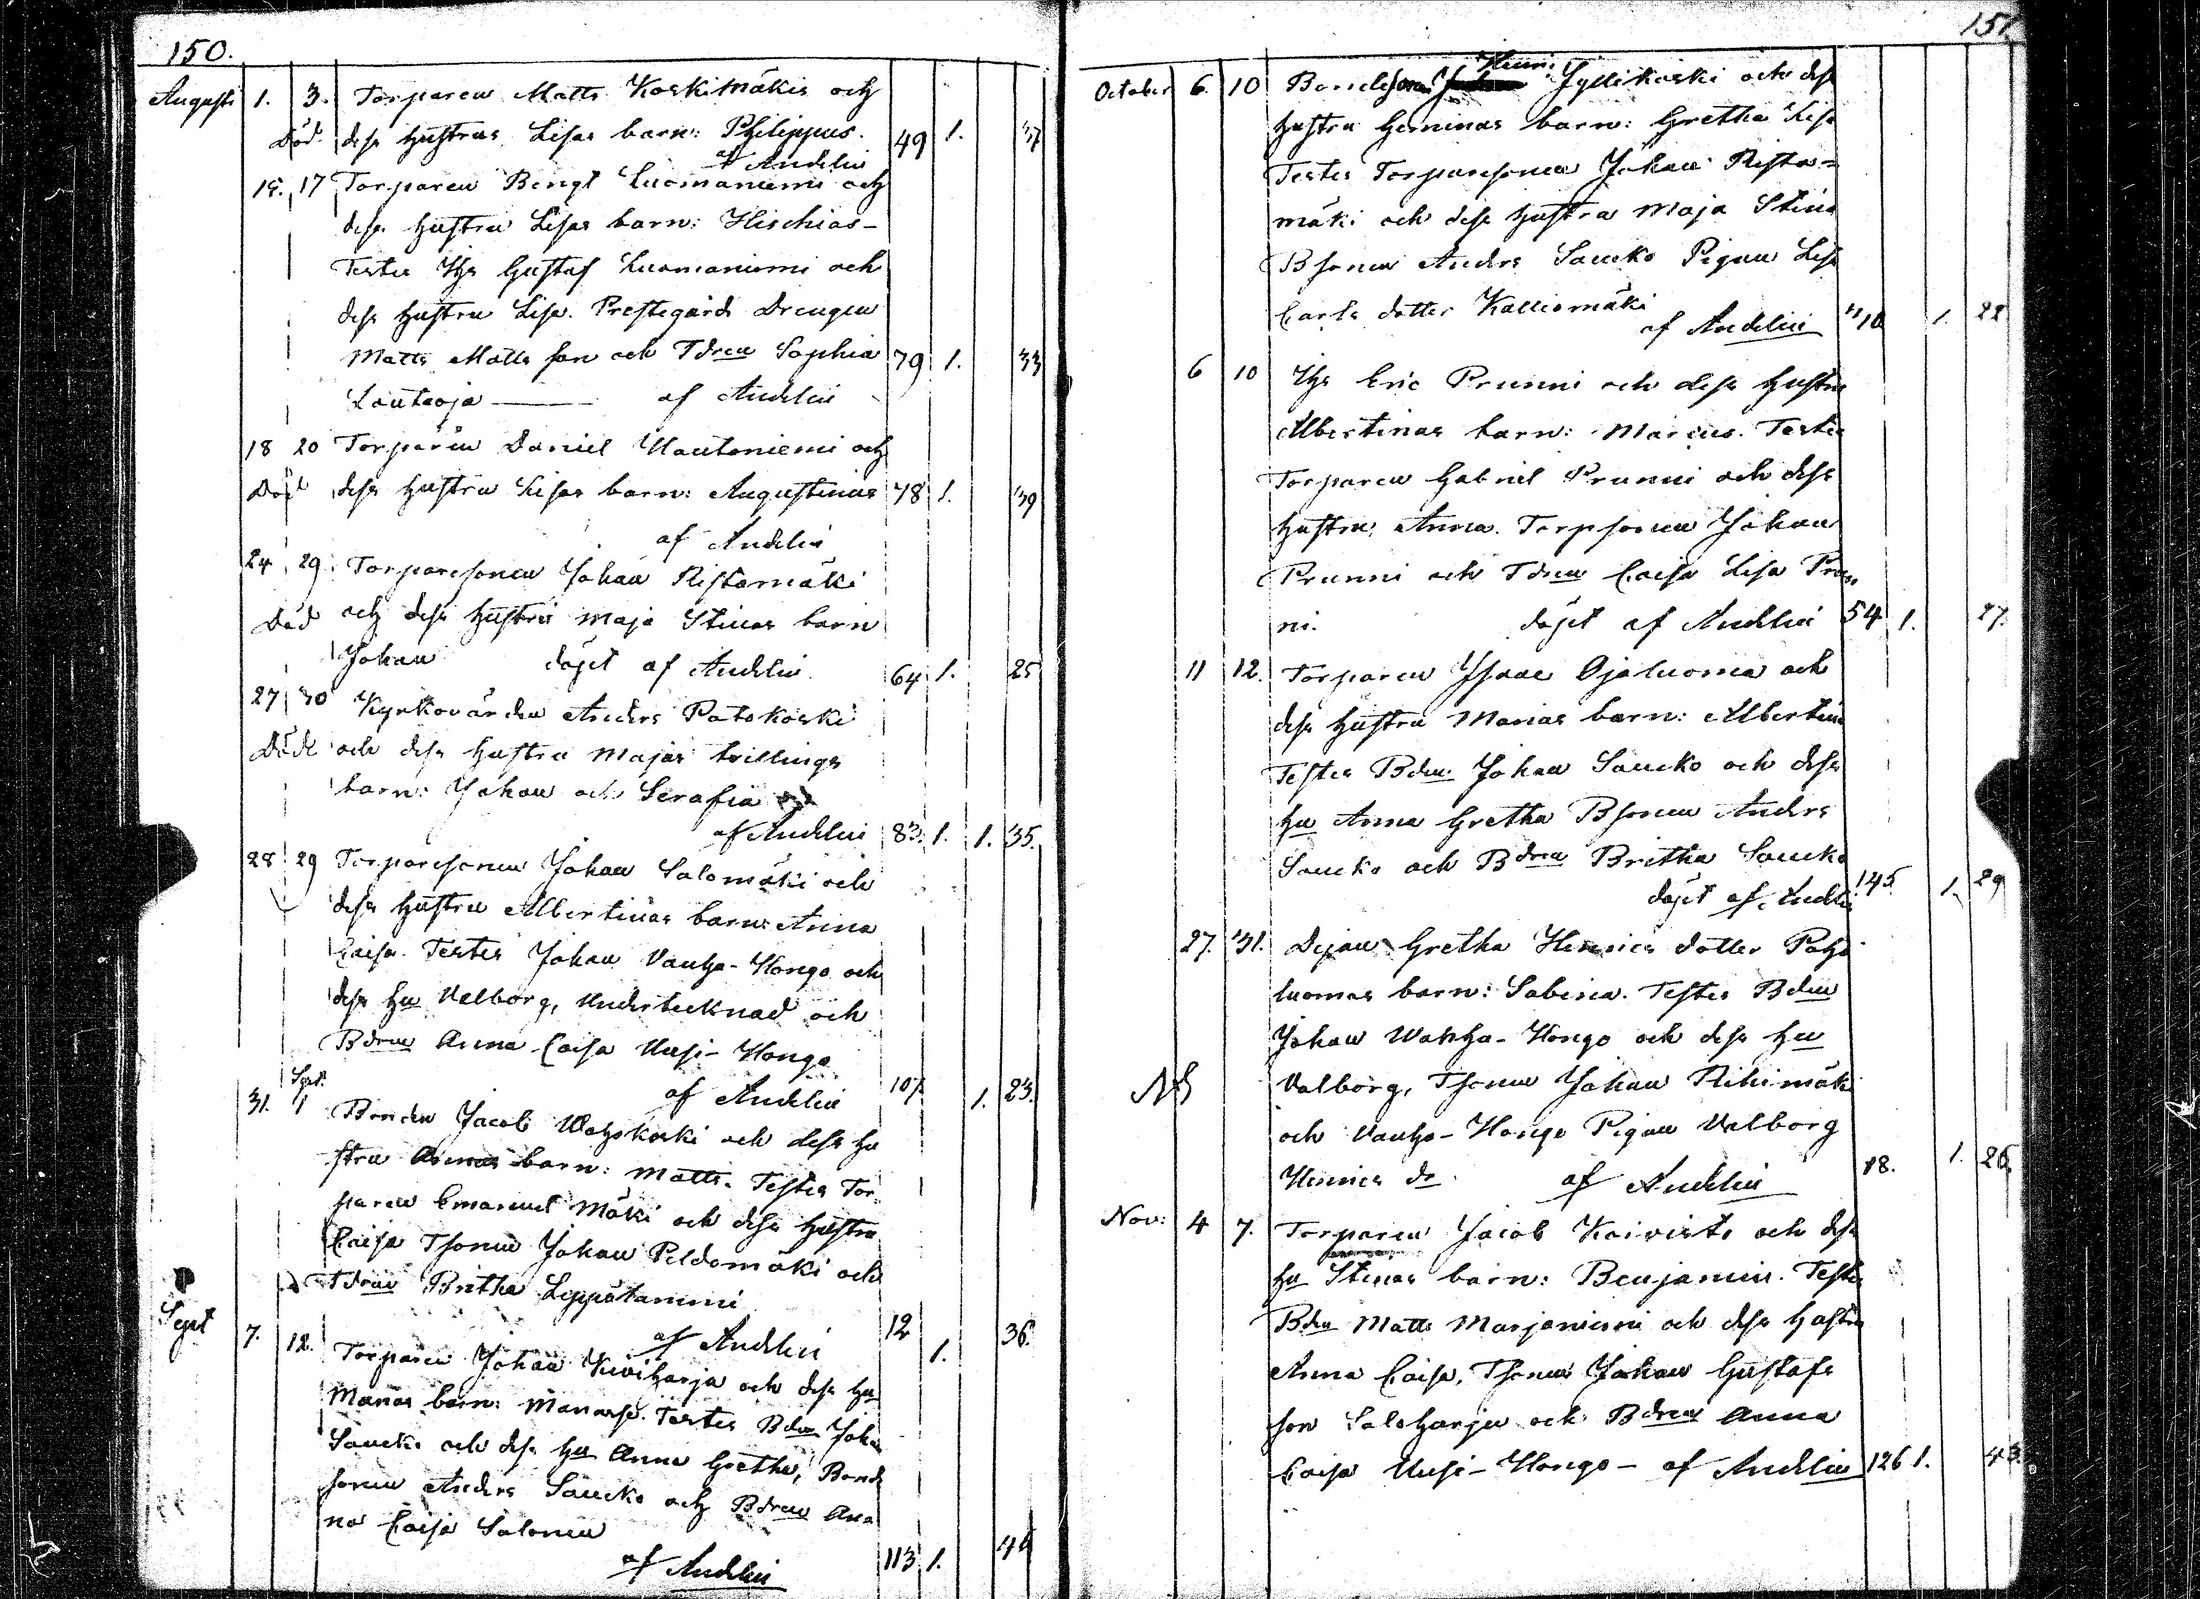 150.
Augusti 1. 3. Torparen Matts Koskimäkis och
Död dess hustrus Lisas barn: Philippus. 49 1. 37
af Andelin
15. 17 Torparen Bengt Luomaniemi och
dess hustru Lisas barn: Hischias-
Testes Hr Gustaf Luomaniemi och
dess hustru Lisa. Prestegårds Drengen
Matts Matts son och Tdren Sophia 79 1. 33
Lautaoja — af Andelin
18 20 Torparen Daniel Hautoniemi och
Död dess hustru Lisas barn: Augustinus 78 1. 39
af Andelin
24 29 Torparesonen Johan Ristamäki
Död och dess hustru Maja Stinas barn
Johan döpt af Andelin 64 1. 25
27 30 Kyrkovärden Anders Patokoski
Död och dess hustru Majas tvillings
barn: Johan och Serafia
af Andelin 83. 1. 1. 35.
28 29 Torparesonen Johan Salomäki och
dess hustru Albertinas barn: Anna
Caisa. Testes Johan Vanha-Hongo och
dess hu Valborg, Undertecknad och
Bdren Anna Caisa Uusi-Hongo
af Andelin 107. 1. 23.
Sept.
31. 1 Bonden Jacob Watjskoski och dess hu
stru Annas barn: Matts. Testes Tor-
paren Emanuel Mäki och dess hustru
Caisa Tsonen Johan Peldomäki och
Tdren Britha Leppätammi
af Andelin 12 1. 36.
Sept 7. 12. Torparen Johan Kiviharja och dess hu
Marias barn: Manasse. Testes Bdn Joha
Saucko och dess hu Anna Gretha, Bonde
sonen Anders Saucko och Bdren Ann
na Caisa Salonen
af Andelin 113 1. 44
151
Henric
October 6. 10 Bondesonen Jyllikoski och dess
hustru Heminas barn: Gretha Lisa
Testes Torparesonen Johan Rista-
mäki och dess hustru Maja Stina
Bsonen Anders Saucko Pigan Lisa
Carls dotter Kalliomäki
af Andelin 110 1. 22
6 10 Hr Eric Prunni och dess hustru
Albertinas barn: Marcus. Testes
Torparen Gabriel Prunni och dess
hustru Anna. Torpsonen Johan
Prunni och Tdren Caisa Lisa Prun
ni. döpt af Andelin 54 1. 27.
11 12. Torparen Isaac Ojaluoma och
dess hustru Marias barn: Albertina
Testes Bdn. Johan Saucko och dess
hu Anna Gretha Bsonen Anders
Saucko och Bdren Britha Saucko
döpt af Andelin 145. 1. 29
27. 31. Dejan Gretha Henrics dotter Pahja
luomas barn: Sabina. Testes Bdn
Johan Wanha-Hongo och dess hu
Valborg, Tsonen Johan Riihimäki
och Vanha-Hongo Pigan Valborg
Henrics dr. af Andelin 18. 1. 26
Nov: 4 7. Torparen Jacob Koivisto och dess
hu Stinas barn: Benjamin. Testes
Bdn Matts Marjaniemi och dess hustru
Anna Caisa, Tsonen Johan Gustafs
son Saloharju och Bdren Anna
Caisa Uusi-Hongo - af Andelin 126 1. 43.